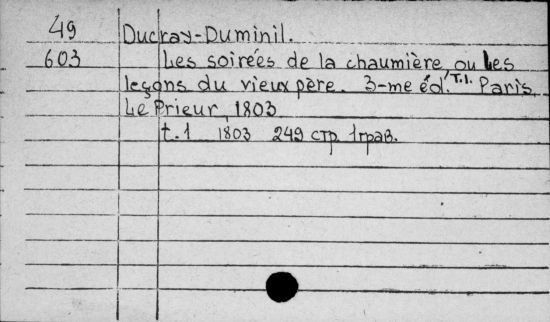 49 Ducray-Duminil.
603 Les soirées de la chaumière ou Les
leçons du vieux père. 3-me éd. T.1. Paris,
Le Prieur, 1803
t.1 1803 249 стр. 1грав.